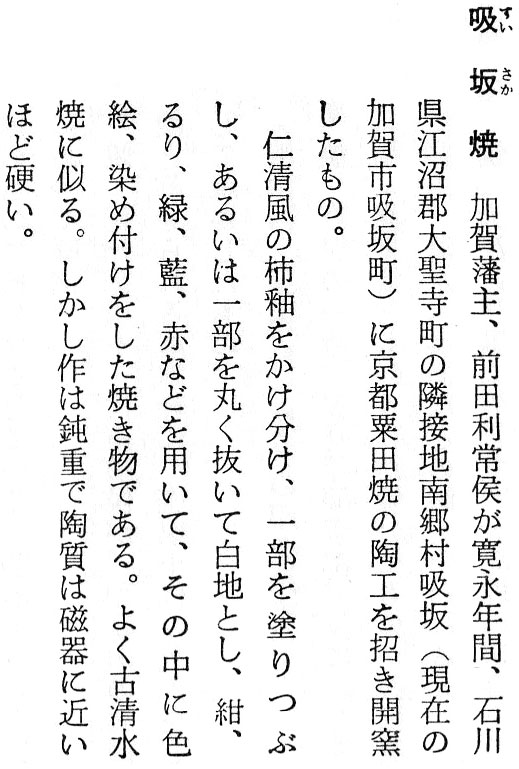 吸坂焼　加賀藩主、前田利常侯が寛永年間、石川
県江沼郡大聖寺町の隣接地南郷村吸坂（現在の
加賀市吸坂町）に京都粟田焼の陶工を招き開窯
したもの。
仁清風の柿釉をかけ分け、一部を塗りつぶ
し、あるいは一部を丸く抜いて白地とし、紺、
るり、緑、藍、赤などを用いて、その中に色
絵、染め付けをした焼き物である。よく古清水
焼に似る。しかし作は鈍重で陶質は磁器に近い
ほど硬い。